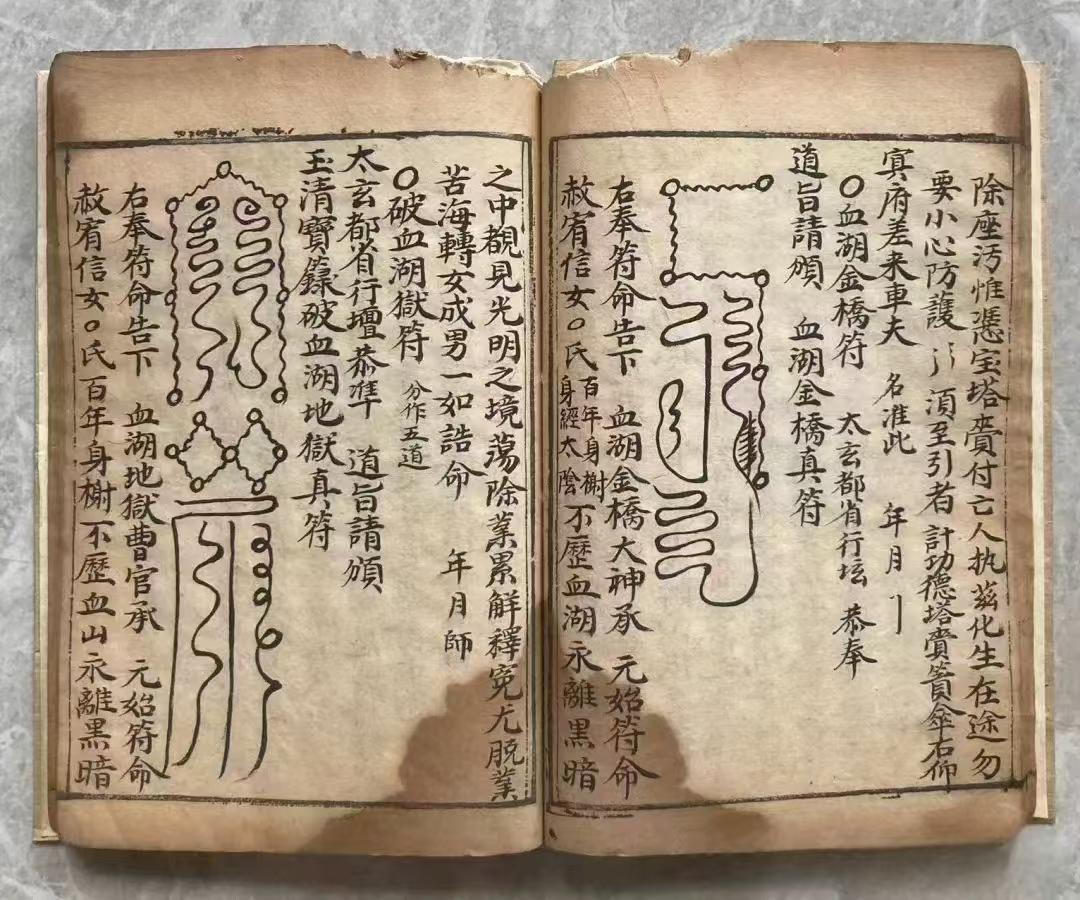 除座污惟憑宝塔賫付亡人执茲化生在途勿
要小心防護 須至引者 計功德塔賫簣傘右仰
冥府差来車夫 名准此 年月
○血湖金橋符 太玄都省行坛 恭奉
道旨請頒 血湖金橋真符
右奉符命告下 血湖金橋大神承 元始符命
赦宥信女○氏百年身榭身經太陰不歷血湖永離黑暗
之中覩見光明之境蕩除業累解釋冤尤脱業
苦海轉女成男一如誥命 年月師
○破血湖獄符 分作五道
太玄都省行壇恭準 道旨請頒
玉清寳籙破血湖地獄真符
右奉符命告下 血湖地獄曹官承 元始符命
赦宥信女○氏百年身榭不歷血山永離黑暗